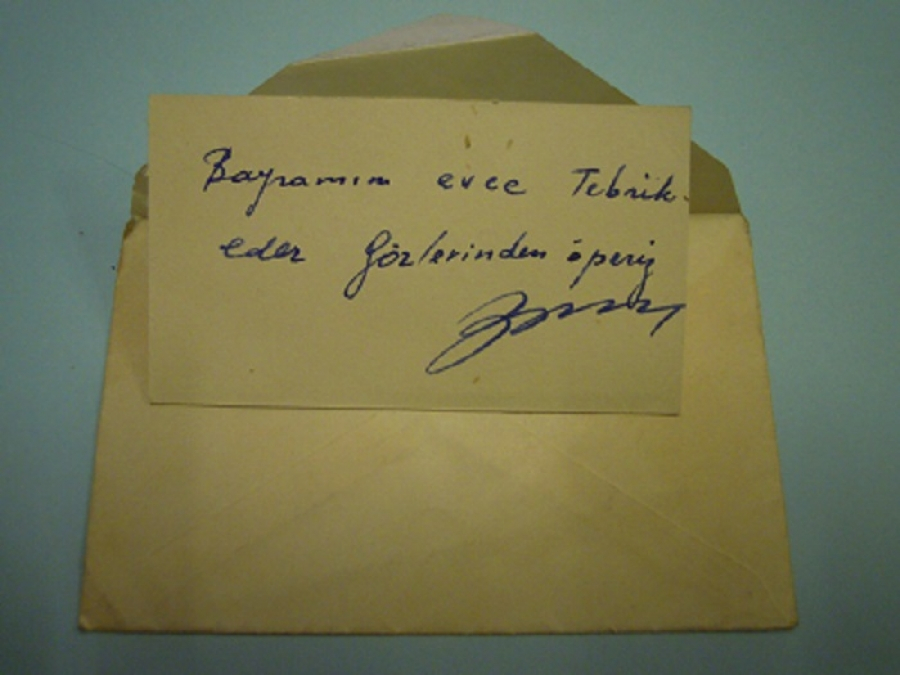 Bayramını evce Tebrik
eder Gözlerinden öperiz